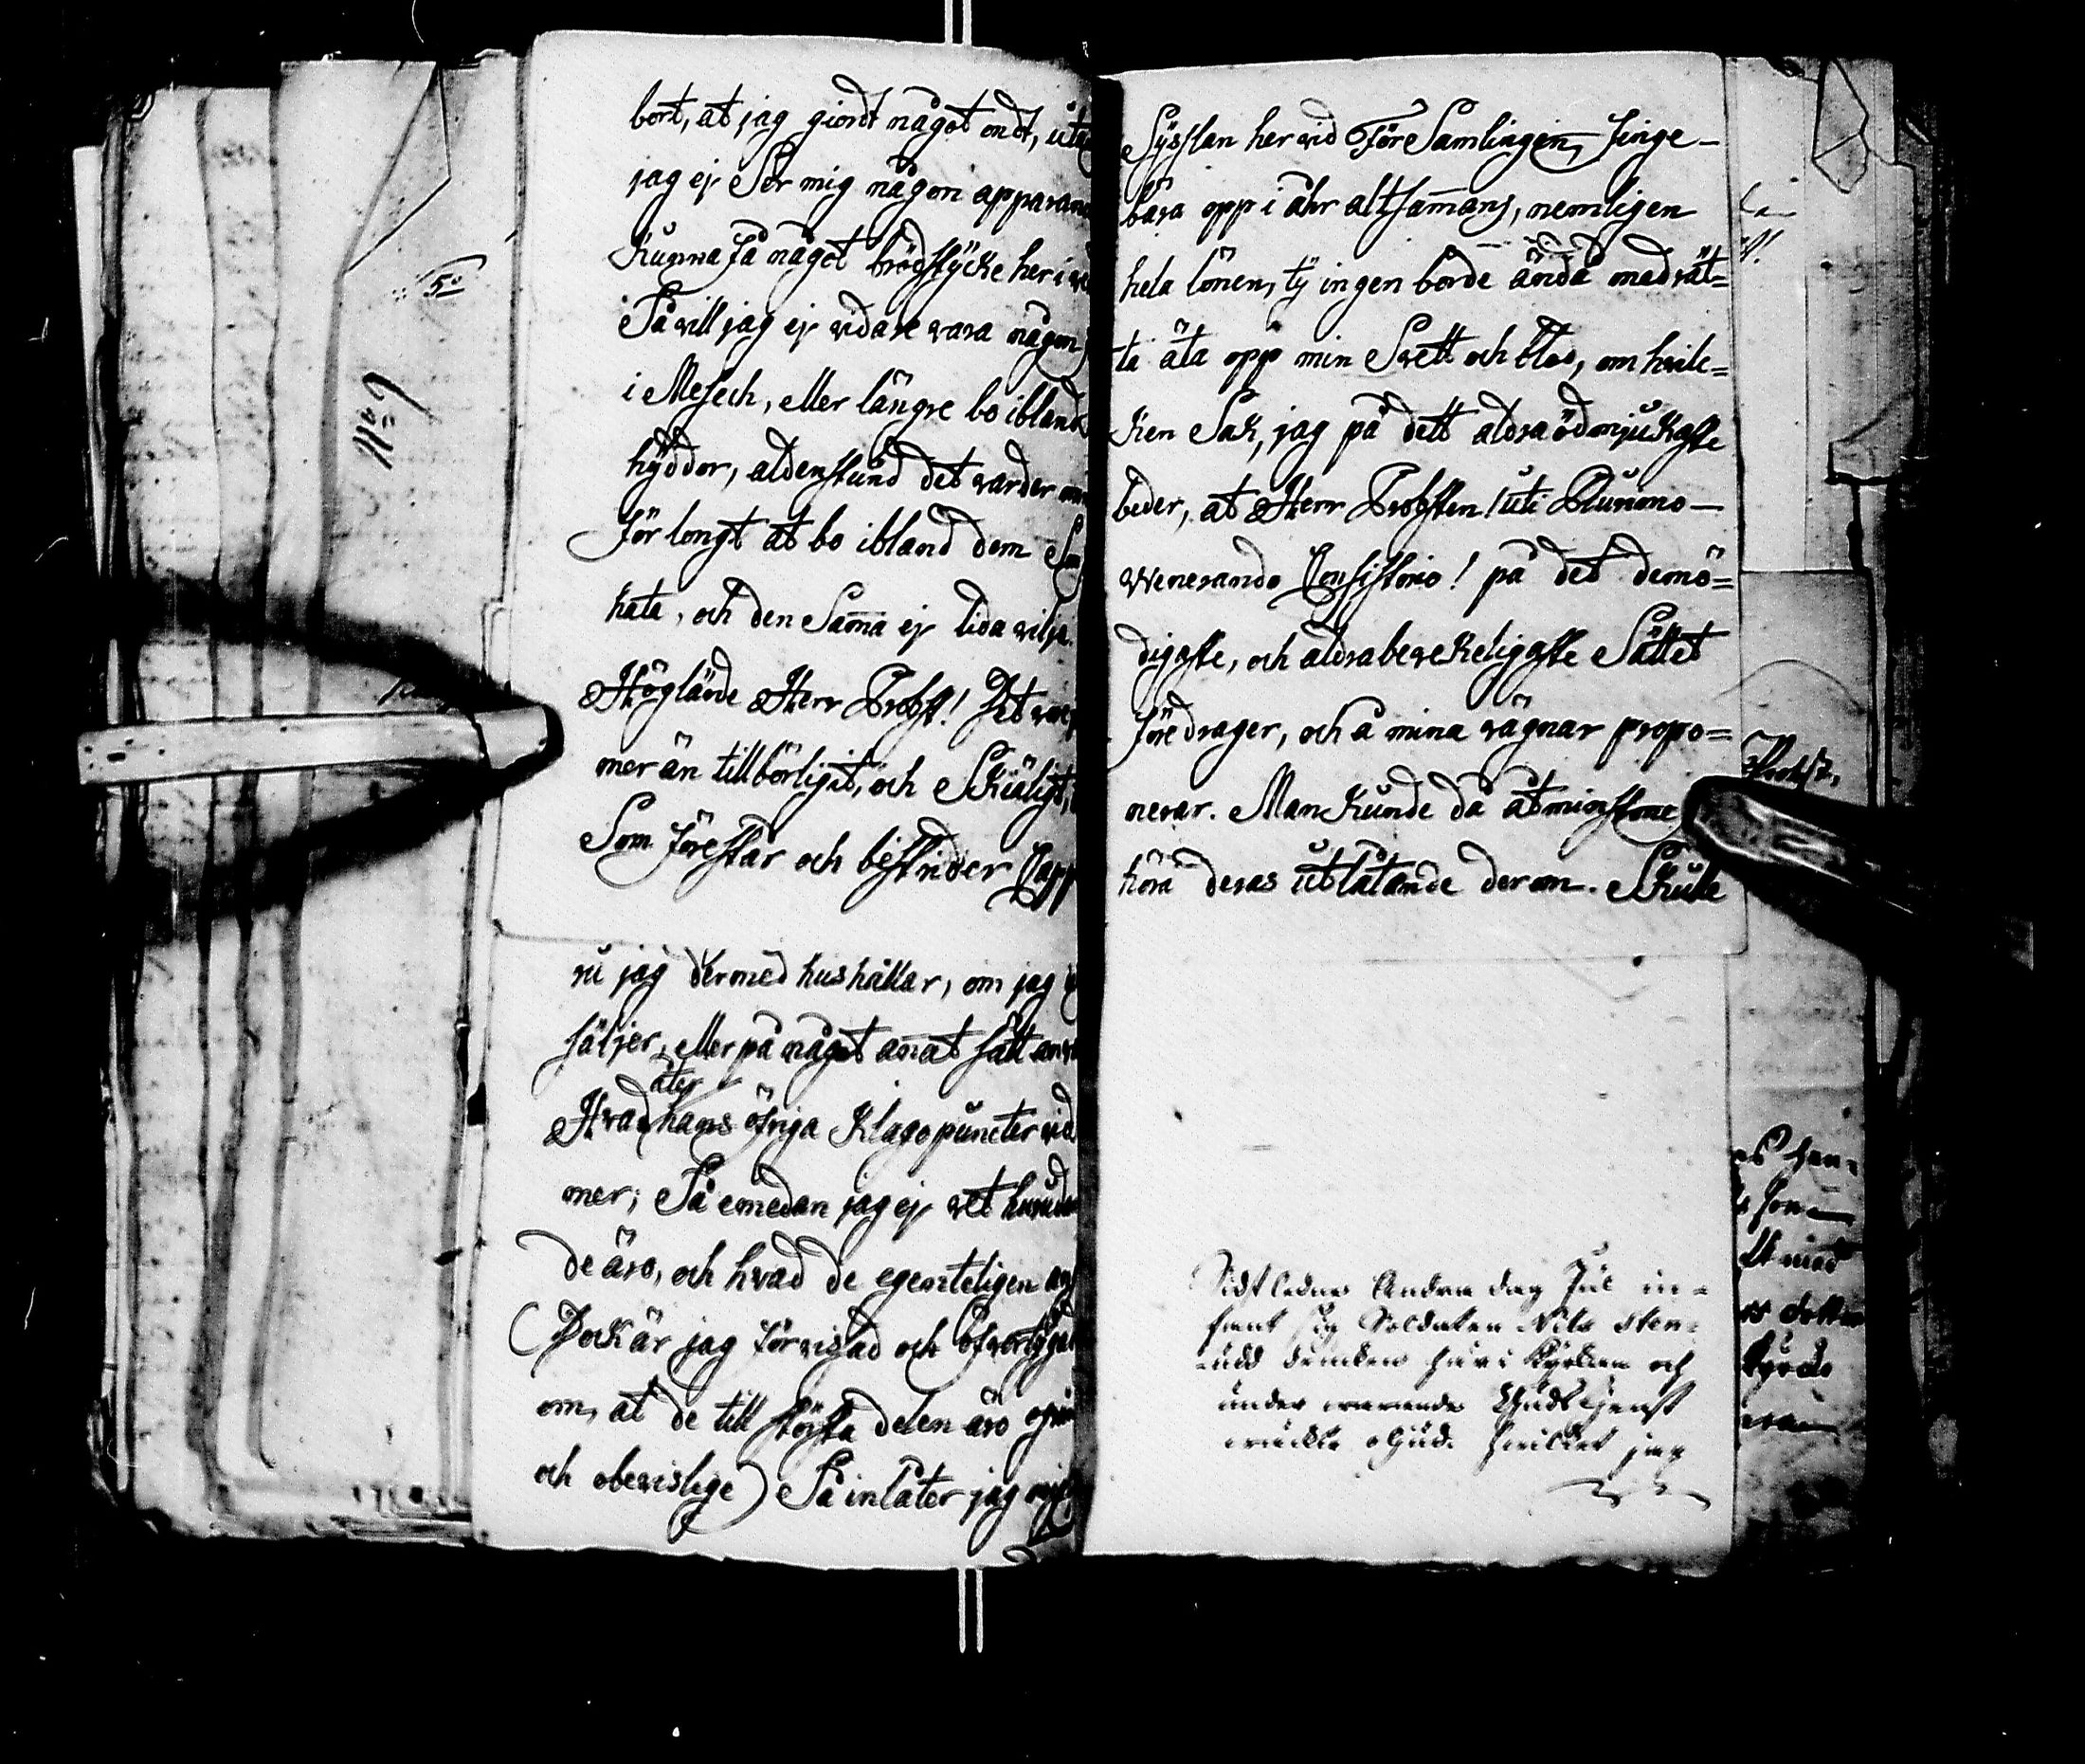 bort, at jag giordt något ondt, uta
jag ej Ser mig någon apparan
Kunna få något brödstÿcke her i
Så will jag ej widare wara någon
i Mesech, eller längre bo ibland
hÿddor, aldenstund det warder
för longt at bo ibland dem
hata, och den Sama ej lida wilja.
Höglärde Herr Probst! Det
mer än tillbörligit, och Skiäligt,
Som förestår och bestrider Capp
ru jag dermed hushållar, om jag
säljer, eller på något anat sätt
Hvad åter hans öfriga Klagopuncter
mer; Så emedan jag ej wet huru
de äro, och hvad de egenteligen
(Dock är jag förvissad och öfvertÿgad
om, at de till största delen äro
och obevislige) Så inlåter jag
Sÿsslan her vid FörSamlingen, finge-
bära opp i åhr altsamans, nemligen
hela lönen, tÿ ingen borde ändå med rät=
ta äta opp min Swett och blod, om hvile=
Ken Sak, jag på dett aldraödmjukaste
beder, at Herr Probsten! uti Plurimo-
wenerando Consistorio! på det demö=
digaste, och aldrabevekeligaste Sättet
föredrager, och å mina vägnar propo=
nerar. Man Kunde då åtminstone
höra deras utlåtande derom. Skulle
Sidstledne Andra dag Jul in=
fant sig Soldaten Nils Sten=
udd drucken här i Kyrkan och
under warande Gudstjenst
wäckte oljud. hvilket jag
N:o 9